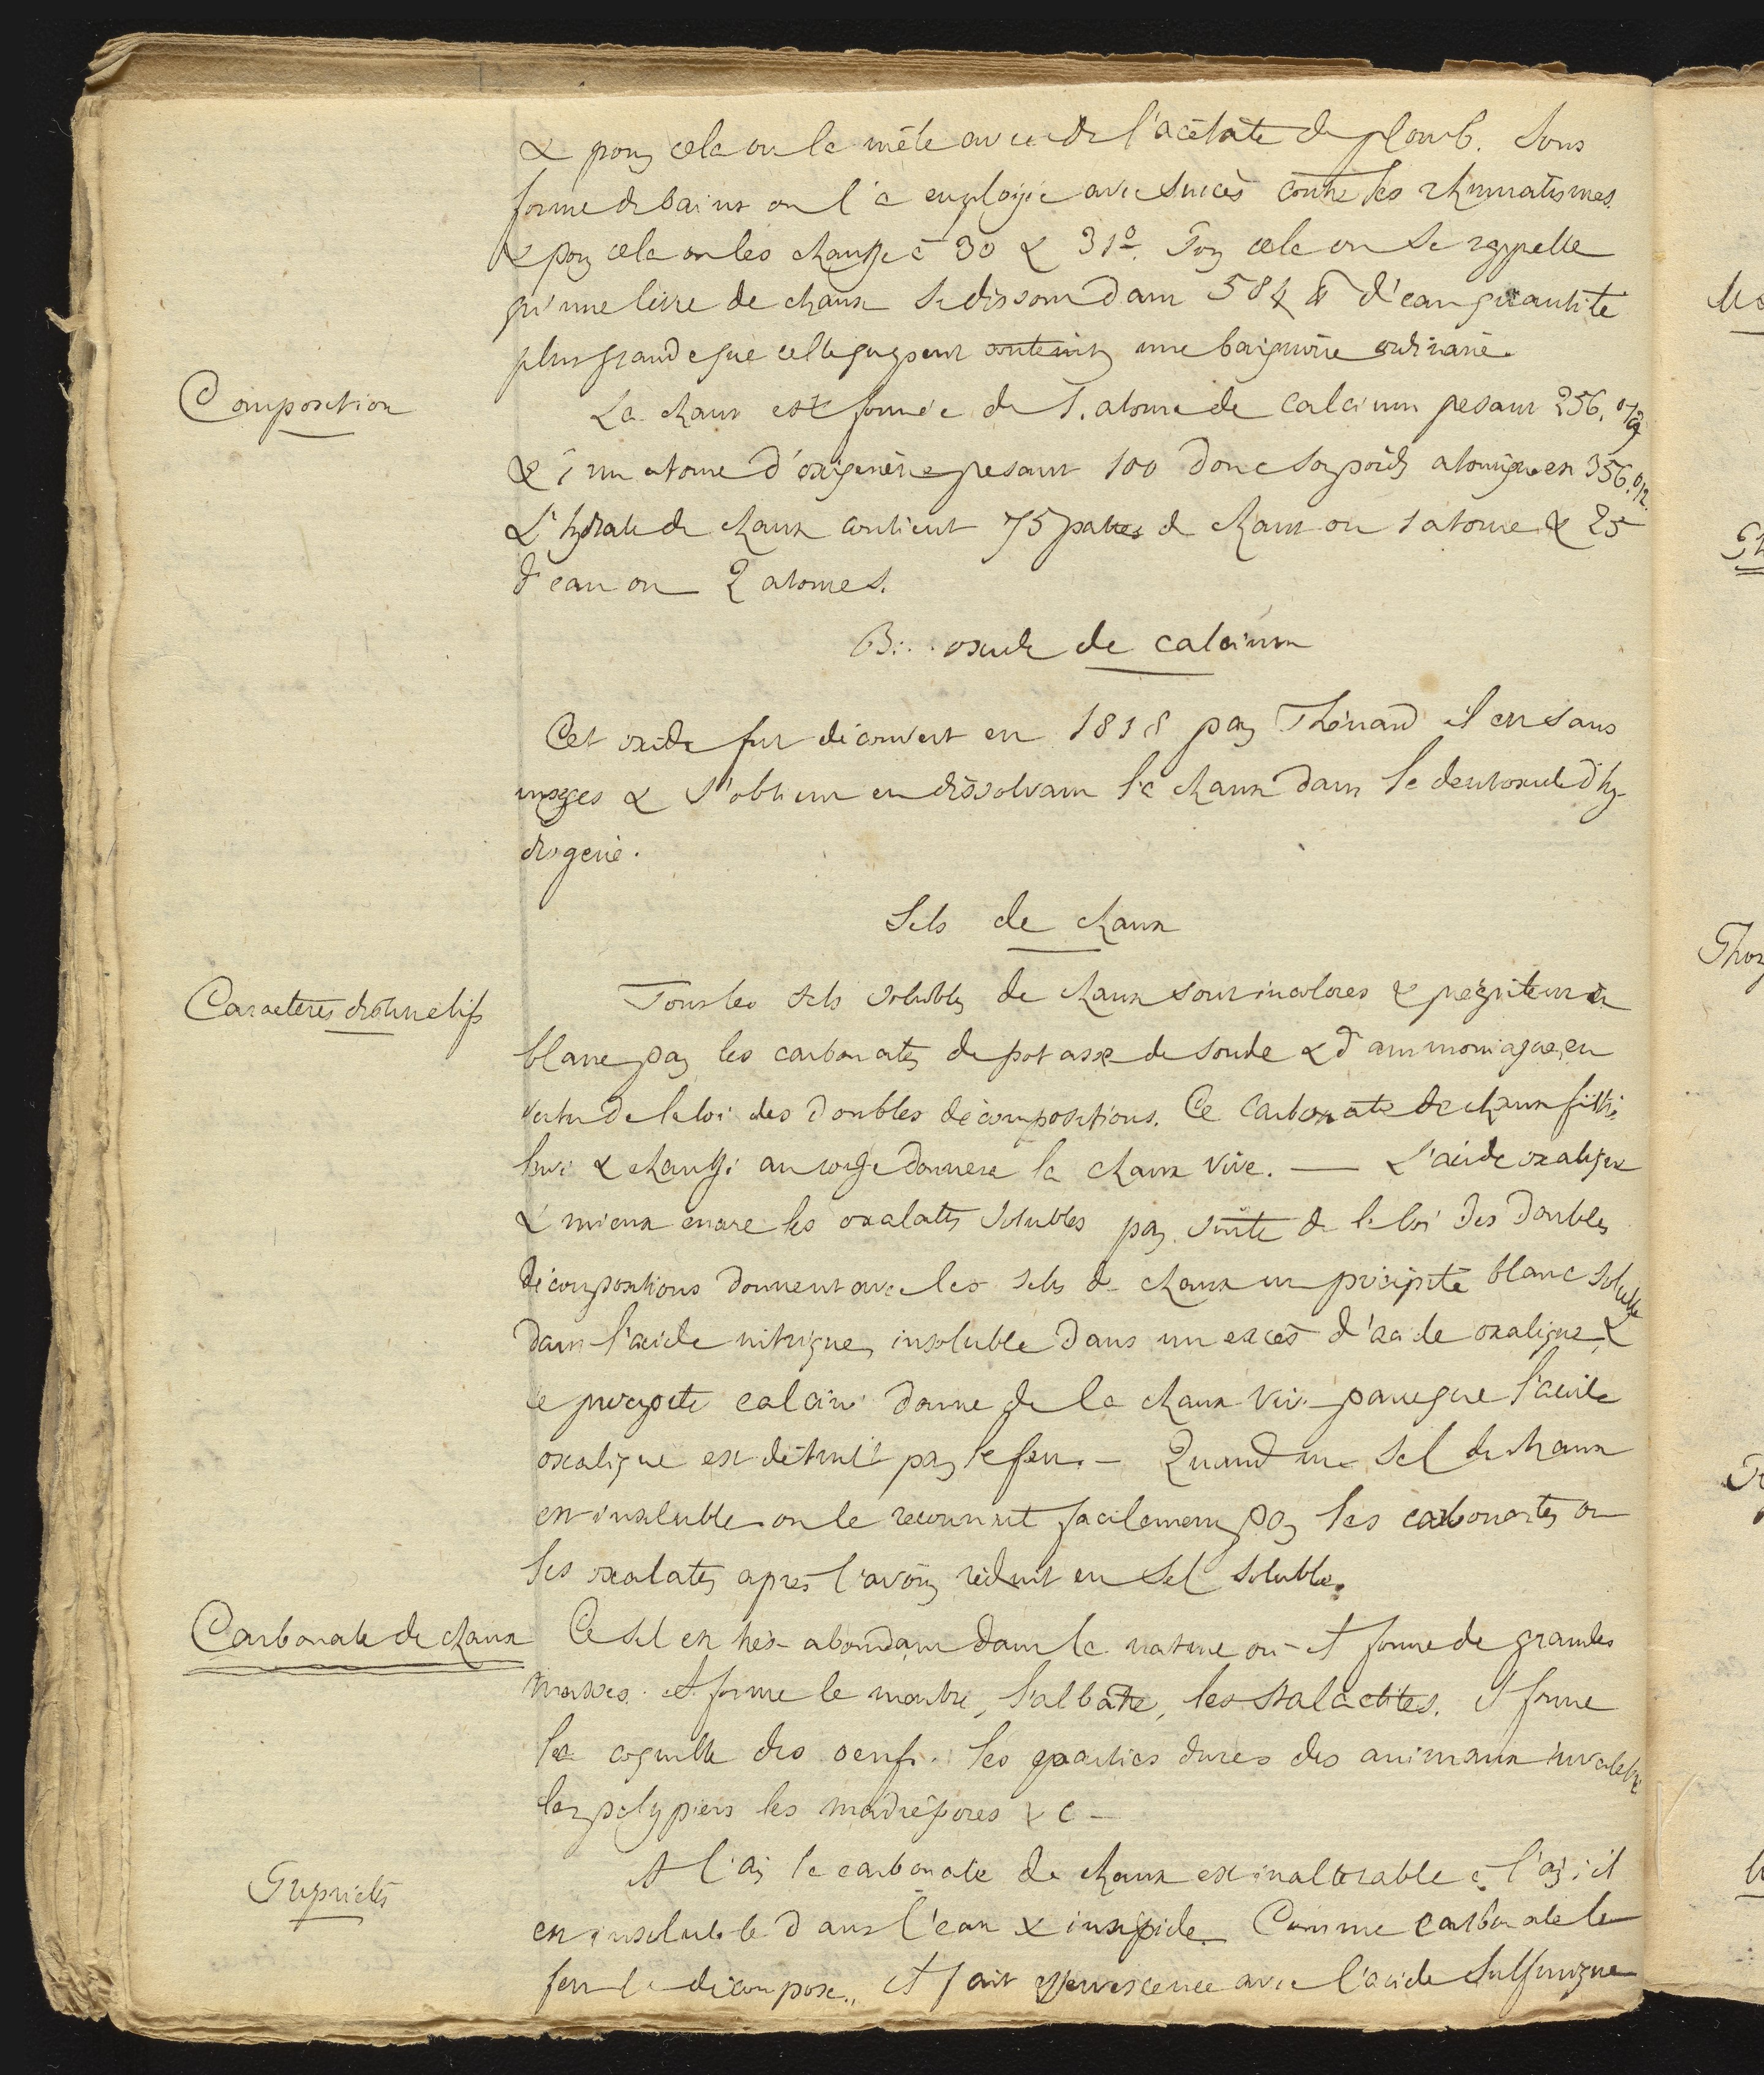 & pour cela on la mêle avec de l'acétate de plomb. Sous
forme de bains on l'a employé avec succès contre les rhumatismes.
& pour cela on les chauffe à 30 & 31°. Pour cela on se rappelle
qu'une livre de chaux se dissout dans 584 ℔ d'eau quantité
plus grande que celle que peut contenir une baignoire ordinaire.
Composition
La chaux est formée de 1. atome de calcium pesant 256. 012
& 1 un atome d'oxigène pesant 100 donc son poids atomique est 356.012.
L'hydrate de chaux contient 75 parties de chaux ou 1 atome & 25
d'eau ou 2 atomes.
Bi..oxide de calcium
Cet oxide fut découvert en 1818 par Thénard il est sans
usages & s'obtient en dissolvant la chaux dans le deutoxide d'hy-
drogène.
Sels de chaux
Caractères distinctifs
Tous les sels solubles de chaux sont incolores & précipitent en
blanc par les carbonates de potasse de soude & d'ammoniaque, en
vertu de la loi des doubles décompositions. Ce carbonate de chaux filtré
lavé & chauffé au rouge donnera la chaux vive. — L'acide oxalique
& mieux encore les oxalates solubles par suite de la loi des doubles
décompositions donnent avec les sels de chaux un précipité blanc soluble
dans l'acide nitrique, insoluble dans un excès d'acide oxalique, &
ce precipité calciné donne de la chaux vive parceque l'acide
oxalique est détruit par le feu. — Quand un sel de chaux
est insoluble on le reconnait facilement par les carbonates ou
les oxalates après l'avoir réduit en sel soluble.
Carbonate de chaux
Ce sel est très-abondant dans la nature où il forme de grandes
masses. Il forme le marbre, l'albatre, les stalactites. Il forme
la coquille des oeufs. les parties dures des animaux invertebré
les polypiers les madrépores &c —
Propriétés
A l'air le carbonate de chaux est inaltérable à l'air; il
est insoluble dans l'eau & insipide. Comme carbonate le
feu le décompose.. Il fait effervescence avec l'acide sulfurique